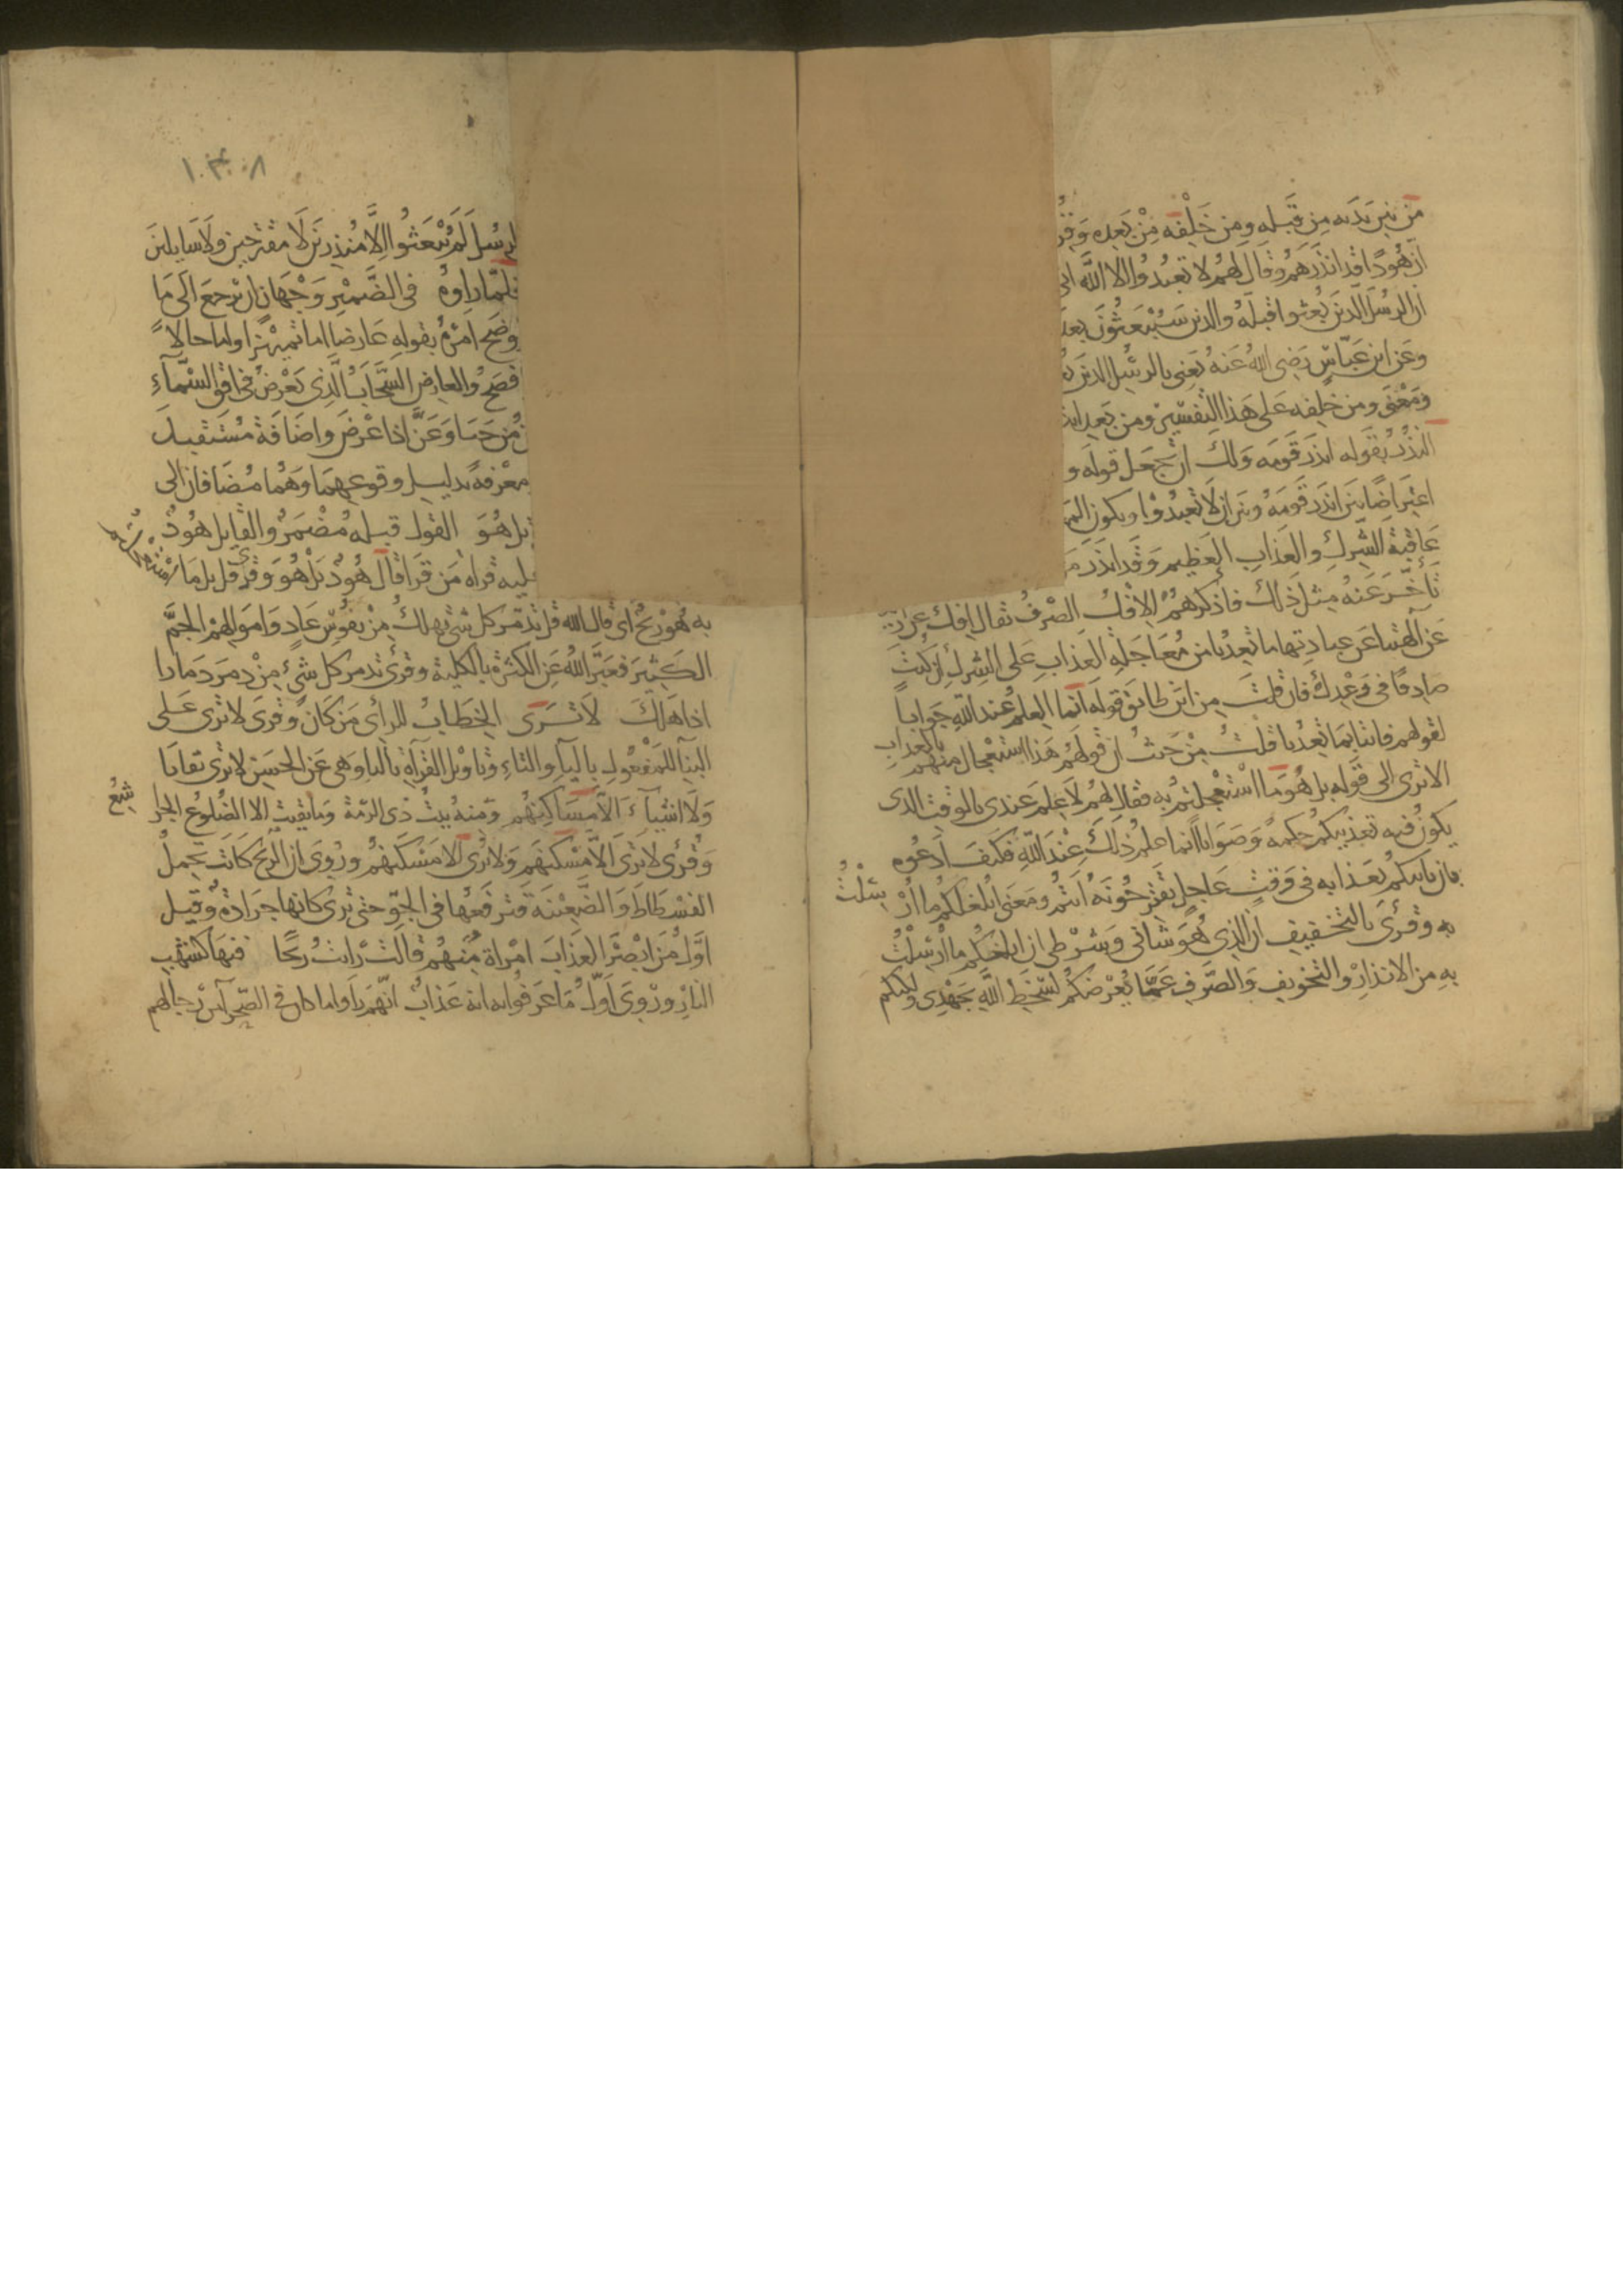 من بين يديه من قبله ومن خلفه من بعده وقر
ان هودا قد انذرهم وقال لهم لا تعبدوا الا الله انى
ان الرسل الذين بعثوا قبله والذين سيبعثون بعد
وعن ابن عباس رضى الله عنه يعنى بالرسل الذين
ومعنى ومن خلفه على هذا التفسير ومن بعد
النذر بقوله انذر قومه ولك ان تجعل قوله و
اعتراضا بين انذر قومه وبين ان لا تعبدوا ويكون
عاقبة الشرك والعذاب العظيم وقد انذر
تاخر عنه مثل ذلك فاذكرهم الافك الصرف يقال افك عن
عن آلهتنا عن عبادتها ما تعدنا من معاجلة العذاب على الشرك ان كنت
صادقا فى وعدك فان قلت من اين طابق قوله انما العلم عند الله جوابا
لقولهم فاتنا بما تعدنا قلت من حيث ان قولهم هذا استعجال منهم بالعذاب
الا ترى الى قوله بل هو ما استعجلتم به فقال لهم لا علم عندى بالوقت الذى
يكون فيه تعذيبكم حكمة وصوابا انما علم ذلك عند الله فكيف ادعوه
بان ياتيكم بعذابه فى وقت عاجل تقترحونه انتم ومعنى ابلغكم ما ارسلت
به وقرئ بالتخفيف ان الذى هو شانى وشرطى ان ابلغكم ما ارسلت
به من الانذار والتخويف والصرف عما يعرضكم لسخط الله بجهدى ولكنكم
١٠٣٠٨
لرسل لم يبعثوا الا منذرين لا مقترحين ولا سايلين
فلما راوه فى الضمير وجهان ان يرجع الى ما
وضح امره بقوله عارضا اما تمييزا واما حالا
افصح والعارض السحاب الذى يعرض فى افق السماء
من حبا وعن اذا عرض واضافة مستقبل
معرفة بدليل وقوعهما وهما مضافان الى
بل هو القول قبله مضمر والقايل هود
عليه قراه من قرا قال هود بل هو وقرئ قل بل ما استعجلتم
به هو ريح اى قال الله قل تدمر كل شئ تهلك من نفوس عاد واموالهم الجم
الكثير فعبر الله عن الكثرة بالكلية وقرئ تدمر كل شئ من دمر دمارا
اذا هلك لا ترى الخطاب للرأى من كان وقرى لا ترى على
البنا للمفعول بالياء والتاء وتاويل القرآة بالتا وهى عن الحسن لا ترى بقايا
ولا اشياء الا مساكنهم ومنه بيت ذى الرمة وما بقيت الا الضلوع الجراشع
وقرئ لا ترى الا مسكنهم ولا يرى الا مسكنهم وروى ان الريح كانت تحمل
الفسطاط والضعينة فترفعها فى الجو حتى ترى كانها جرادة وقيل
اول من ابصر العذاب امراة منهم قالت رايت ريحا فيها كشهب
النار وروى اول ما عرفوا به انه عذاب انهم راوا ما كان فى الصحرآء من رحالهم